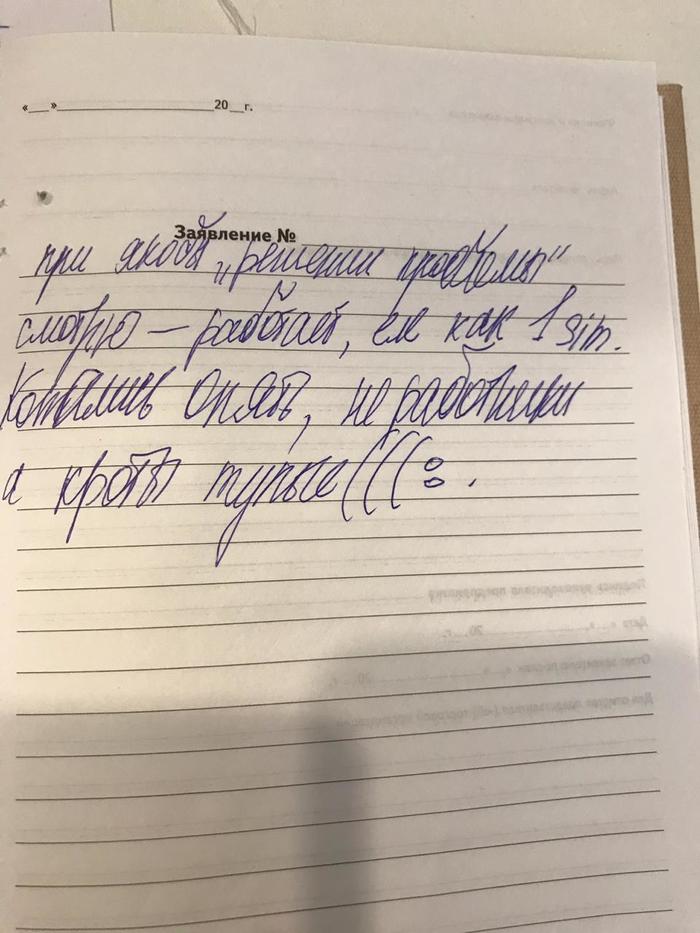 «___»____________________20__г.
Заявление №
при якобы „решении проблемы“
смотрю — работает, ел как 1 sim.
Копались опять, не работники
а кроты тупые(((:.